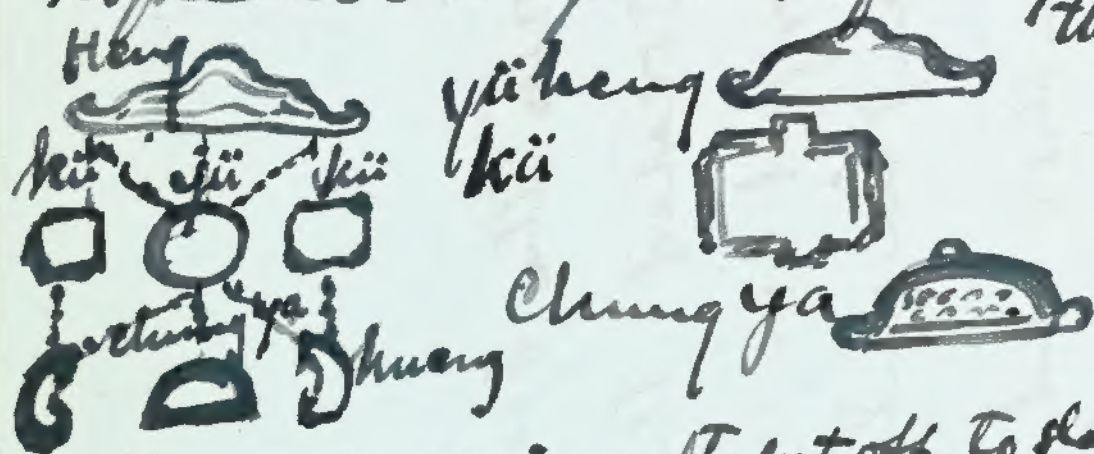 Heng
kü yü kü
chung ya
huang
yüheng
kü
Chung ya